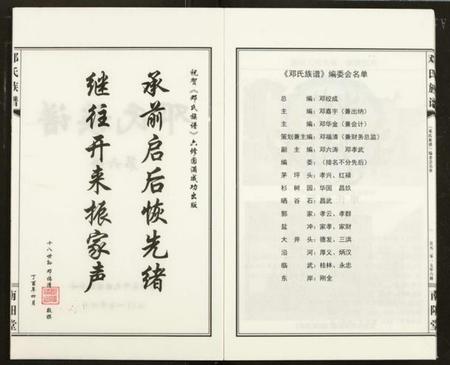 邓氏族谱
祝贺《邓氏族谱》六修圆满成功出版
承前启后恢先绪
继往开来振家声
十八世孙 邓福清
丁酉年四月 敬撰
南阳堂
《邓氏族谱》编委会名单
总编：邓绞成
主编：邓嘉宇（兼出纳）
主编：邓华金（兼会计）
策划兼主编：邓福清（兼财务总监）
副主编：邓六涛 邓孝武
编委：（排名不分先后）
茅坪头：孝兴、红禄
杉树园：华国 昌校
晒谷石：昌武
郭家：孝云、孝群
盐冲：家孝、家财
大井头：德发、三洪
沿河：厚义、炳汉
临武：桂林、永忠
东岸：刚全
邓氏族谱
《邓氏族谱》编委会名单
南阳堂